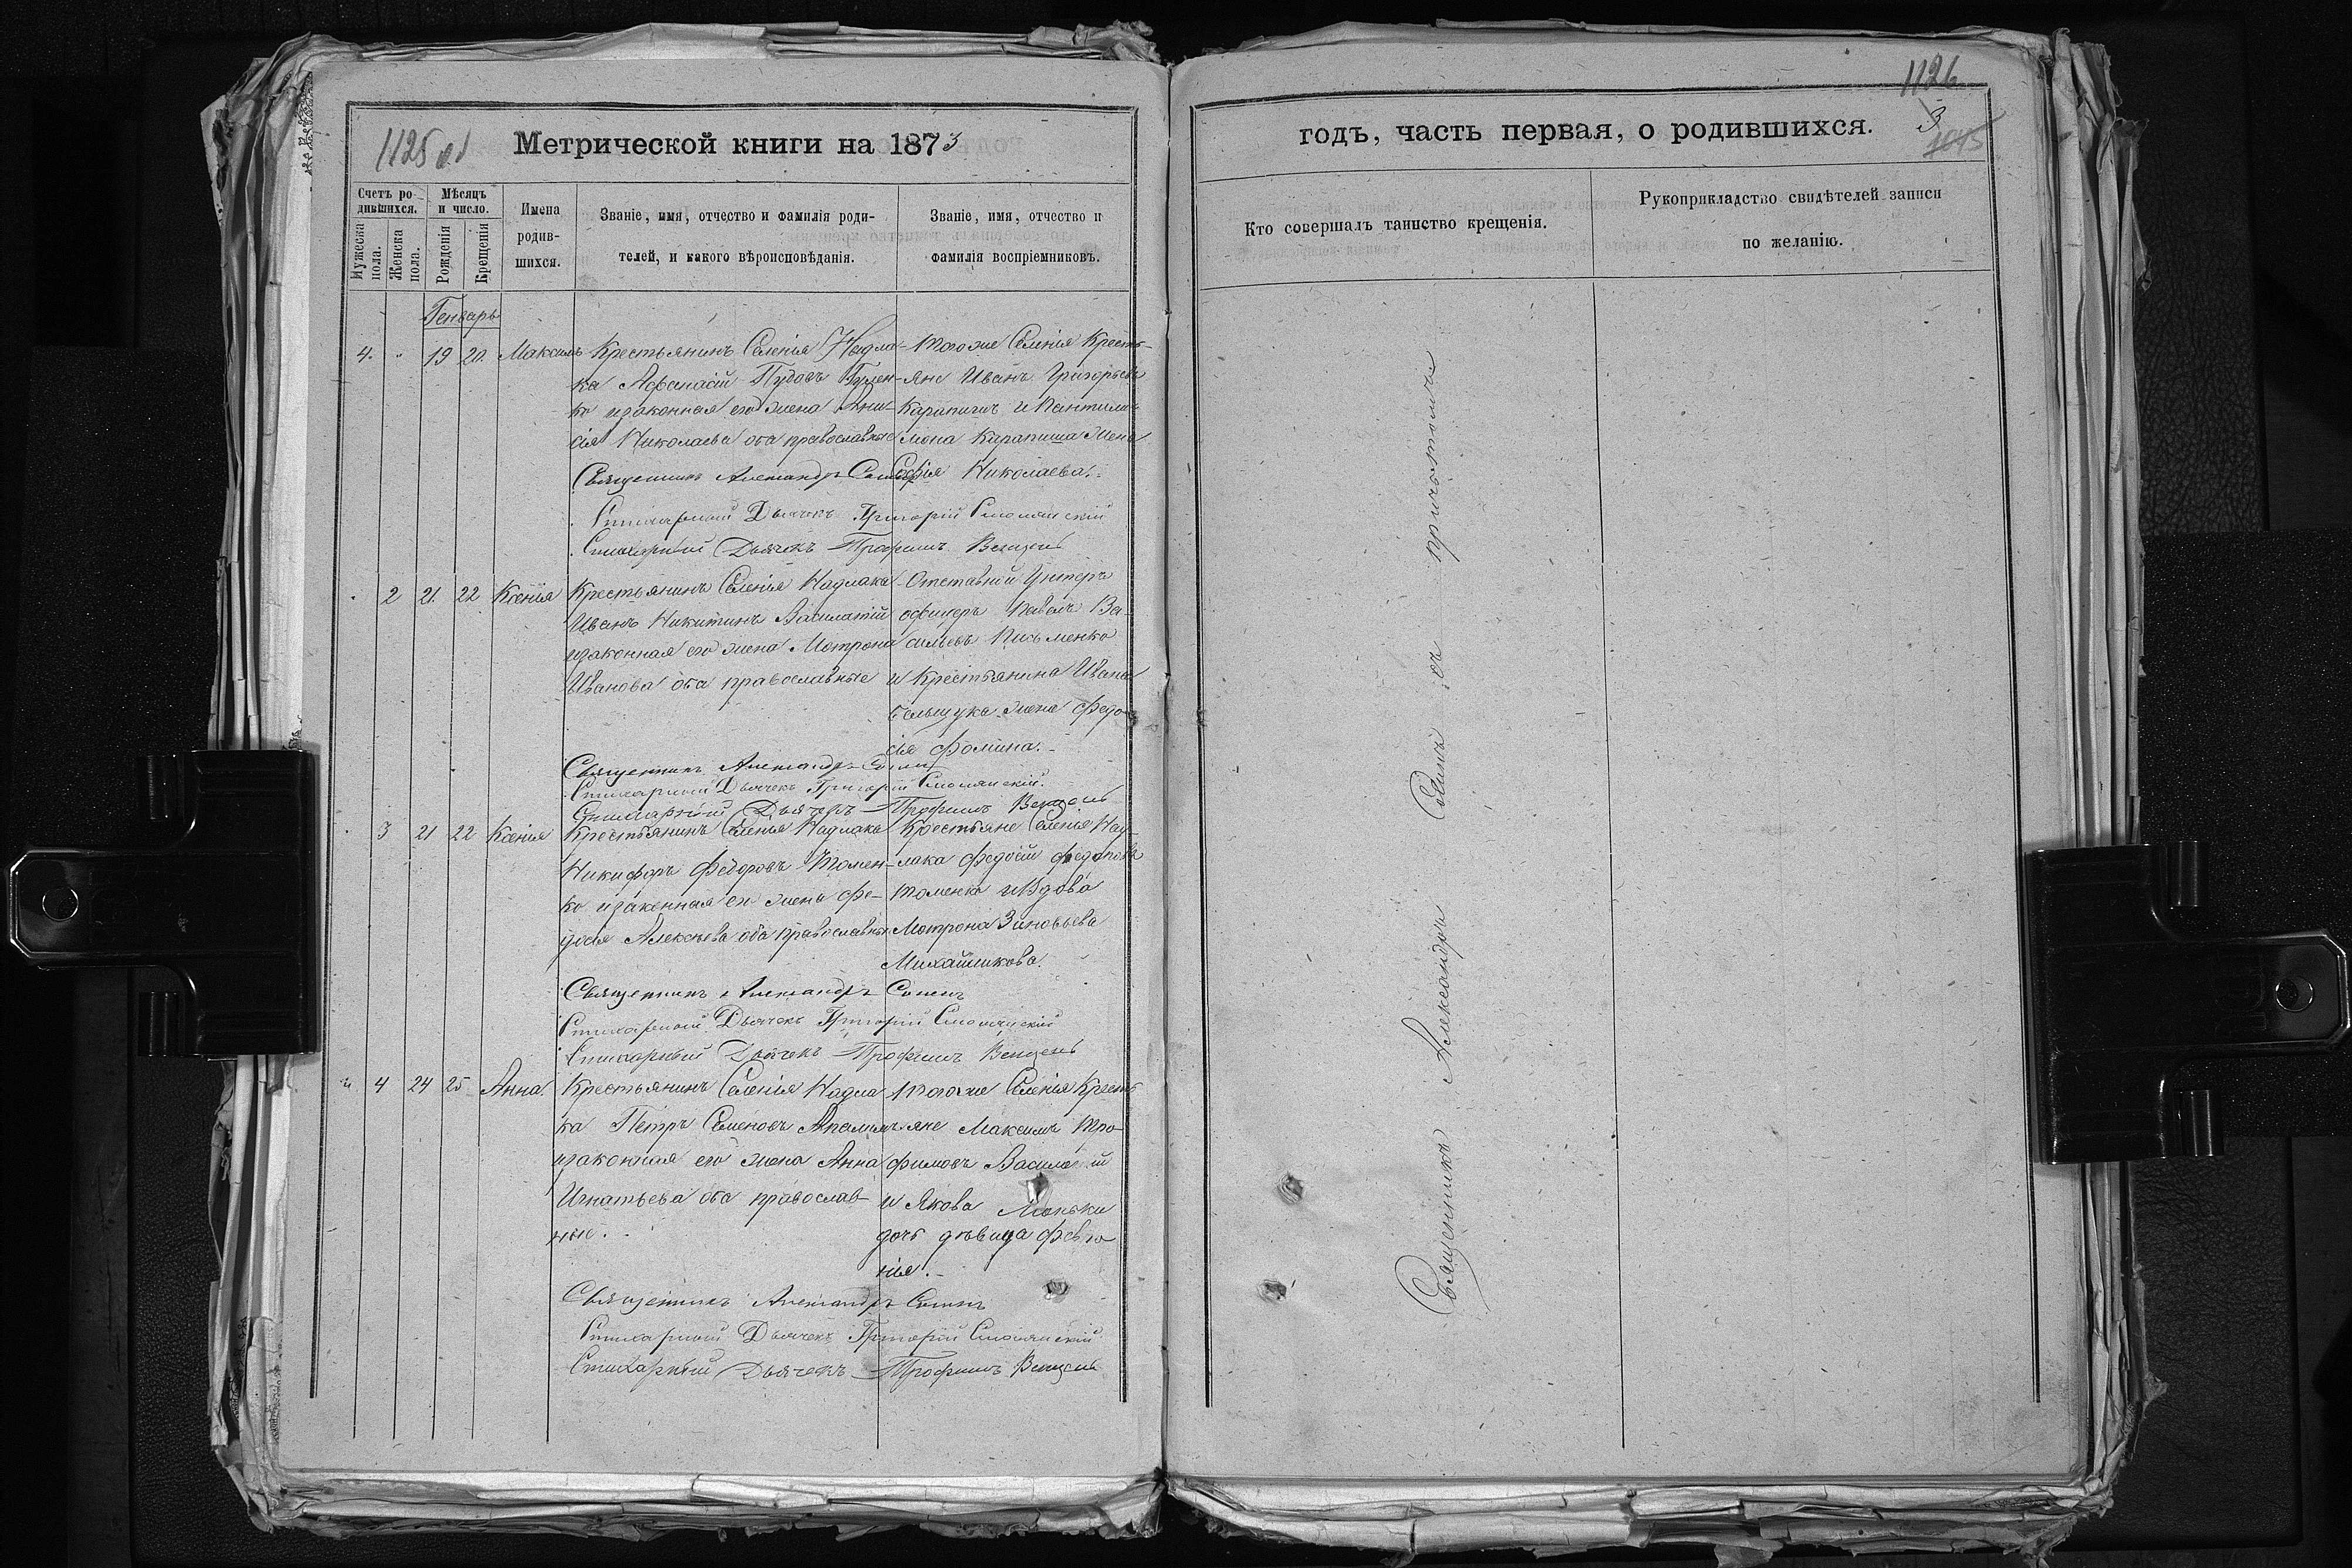 1125 об
Метрической книги на 1873
Счетъ ро-
дившихся.
Мѣсяцъ
и число.
Мужеска
пола.
Женска
пола.
Рожденія
Крещенія
Имена
родив-
шихся.
Званіе, имя, отчество и фамилія роди-
телей, и какого вѣроисповѣданія.
Званіе, имя, отчество и
фамилія воспріемниковъ.
Генварь
4. " 19 20. Максимъ
Крестьянинъ Селенія Надла-
ка Афанасій Пудовъ
ко изаконная его жена Ани-
сія Николаева оба православные
Тогоже Селенія Кресть-
яне Иванъ Григорьевъ
и Пантили-
мона жена
Софія Николаева.
Священникъ Александръ
Стихарный Дьячекъ Григорій Смолянскій
Стихарный Дьячекъ Трофимъ
2 21. 22 Ксенія
Крестьянинъ Селенія Надлака
Иванъ Никитинъ Василатій
изаконная его жена Мотрона
Иванова оба православные
Отставный Унтеръ
офицеръ Павелъ Ва-
сильевъ Письменко
и Крестьянина Ивана
жена Федо-
сія Фомина.
Священникъ Александръ
Стихарный Дьячекъ Григорій Смолянскій.
Стихарный Дьячекъ Трофимъ
3 21 22 Ксенія
Крестьянинъ Селенія Надлака
Никифоръ Федоровъ Томен-
ко изаконная его жена Фе-
досія Алексѣева оба православные
Крестьяне Селенія Над-
лака Федосій
Томенко и Вдова
Мотрона Зиновьева
Михайликова.
Священникъ Александръ
Стихарный Дьячекъ Григорій Смолянскій
Стихарный Дьячекъ Трофимъ
" 4 24 25 Анна.
Крестьянинъ Селенія Надла
ка Петръ Семеновъ
изаконная его жена Анна
Игнатьева оба православ-
ные.
Тогоже Селенія Кресть
яне Максимъ Тро-
фимовъ Василатій
и Якова Моньки
дочь дѣвица Февро
нія.
Священникъ Александръ
Стихарный Дьячекъ Григорій Смолянскій
Стихарный Дьячекъ Трофимъ
1126
3
1045
годъ, часть первая, о родившихся.
Кто совершалъ таинство крещенія.
Рукоприкладство свидѣтелей записи
по желанію.
Священникъ Александръ съ причтомъ